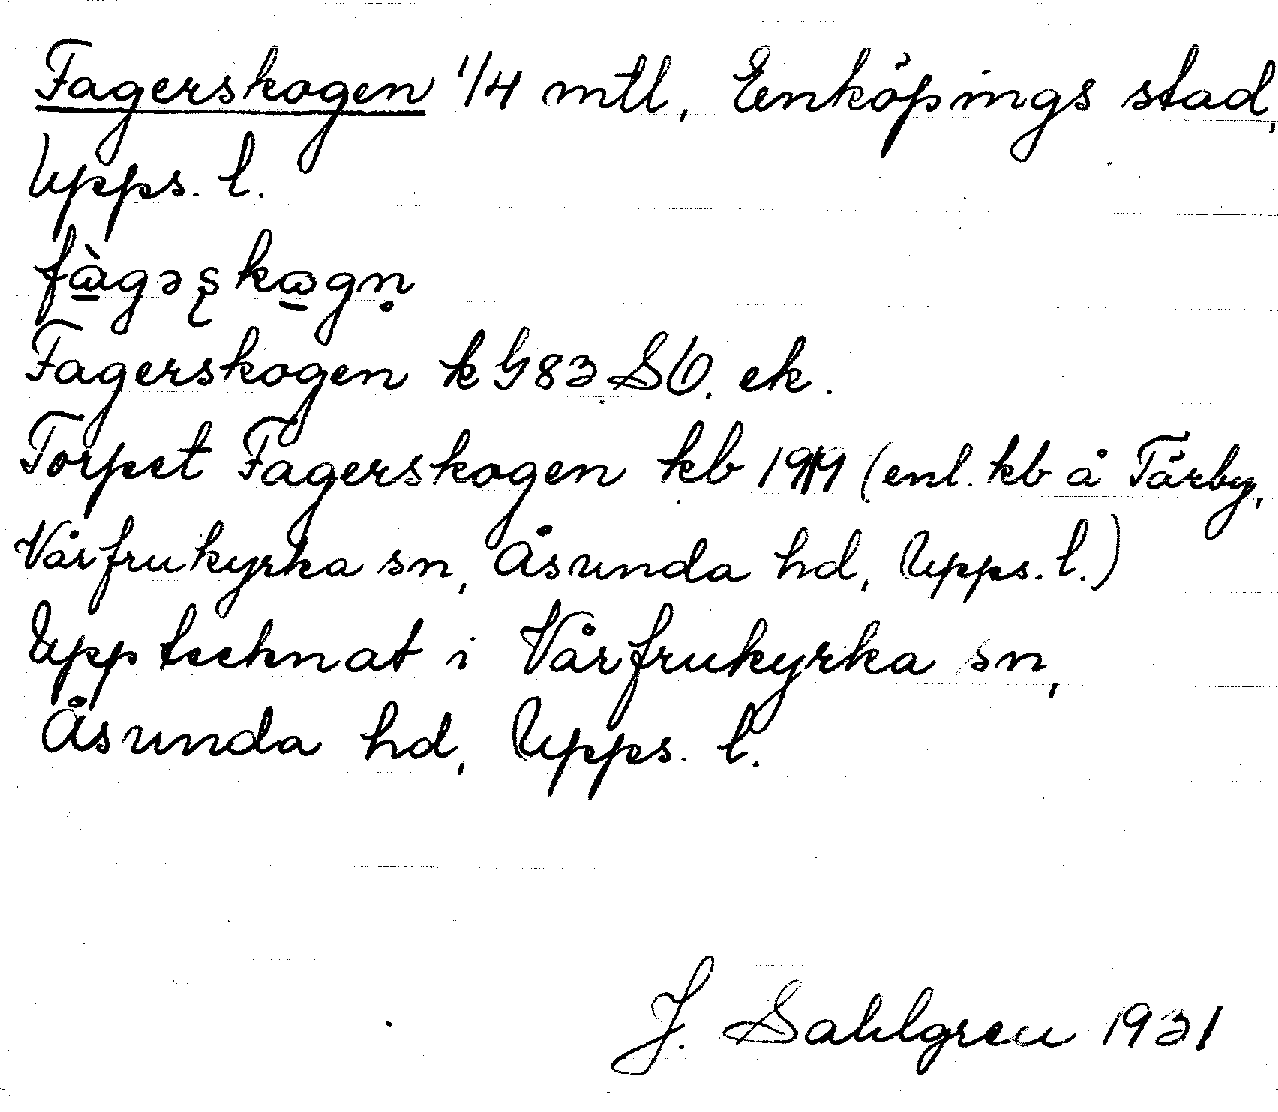 Fagerskogen 1/4 mtl, Enköpings stad,
Upps. l.
Fagerskogen k G83 SV. ek.
Torpet Fagerskogen kb (enl. kb å Tärby,
Vårfrukyrka sn, Åsunda hd, Upps. l.)
Upptecknat i Vårfrukyrka sn,
Åsunda hd, Upps. l.
J. Sahlgren 1931